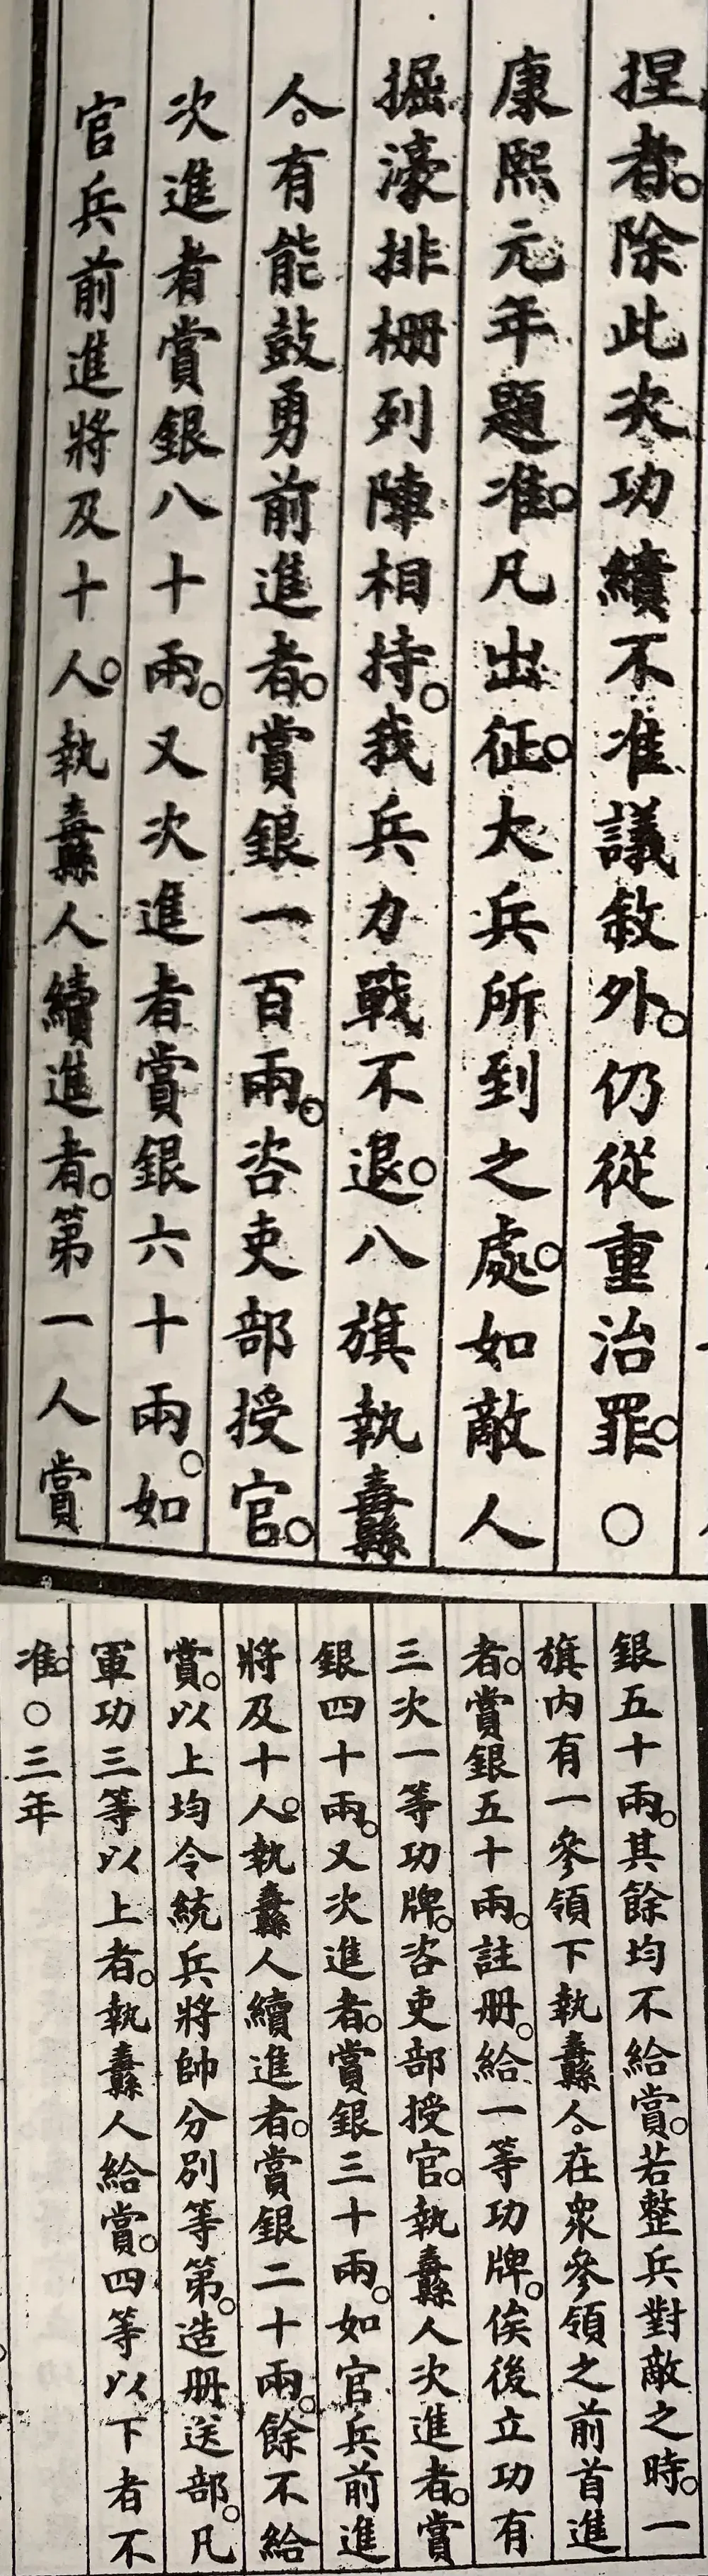 捏者。除此次功績不准議敘外。仍從重治罪。○
康熙元年題准。凡出征。大兵所到之處。如敵人
掘濠排柵列陣相持。我兵力戰不退。八旗執纛
人。有能鼓勇前進者。賞銀一百兩。咨吏部授官。
次進者賞銀八十兩。又次進者賞銀六十兩。如
官兵前進將及十人。執纛人續進者。第一人賞
銀五十兩。其餘均不給賞。若整兵對敵之時。一
旗內有一參領下執纛人。在眾參領之前首進
者。賞銀五十兩。註冊。給一等功牌。俟後立功有
三次一等功牌。咨吏部授官。執纛人次進者。賞
銀四十兩。又次進者。賞銀三十兩。如官兵前進
將及十人。執纛人續進者。賞銀二十兩。餘不給
賞。以上均令統兵將帥分別等第。造冊送部。凡
軍功三等以上者。執纛人給賞。四等以下者不
准。○三年